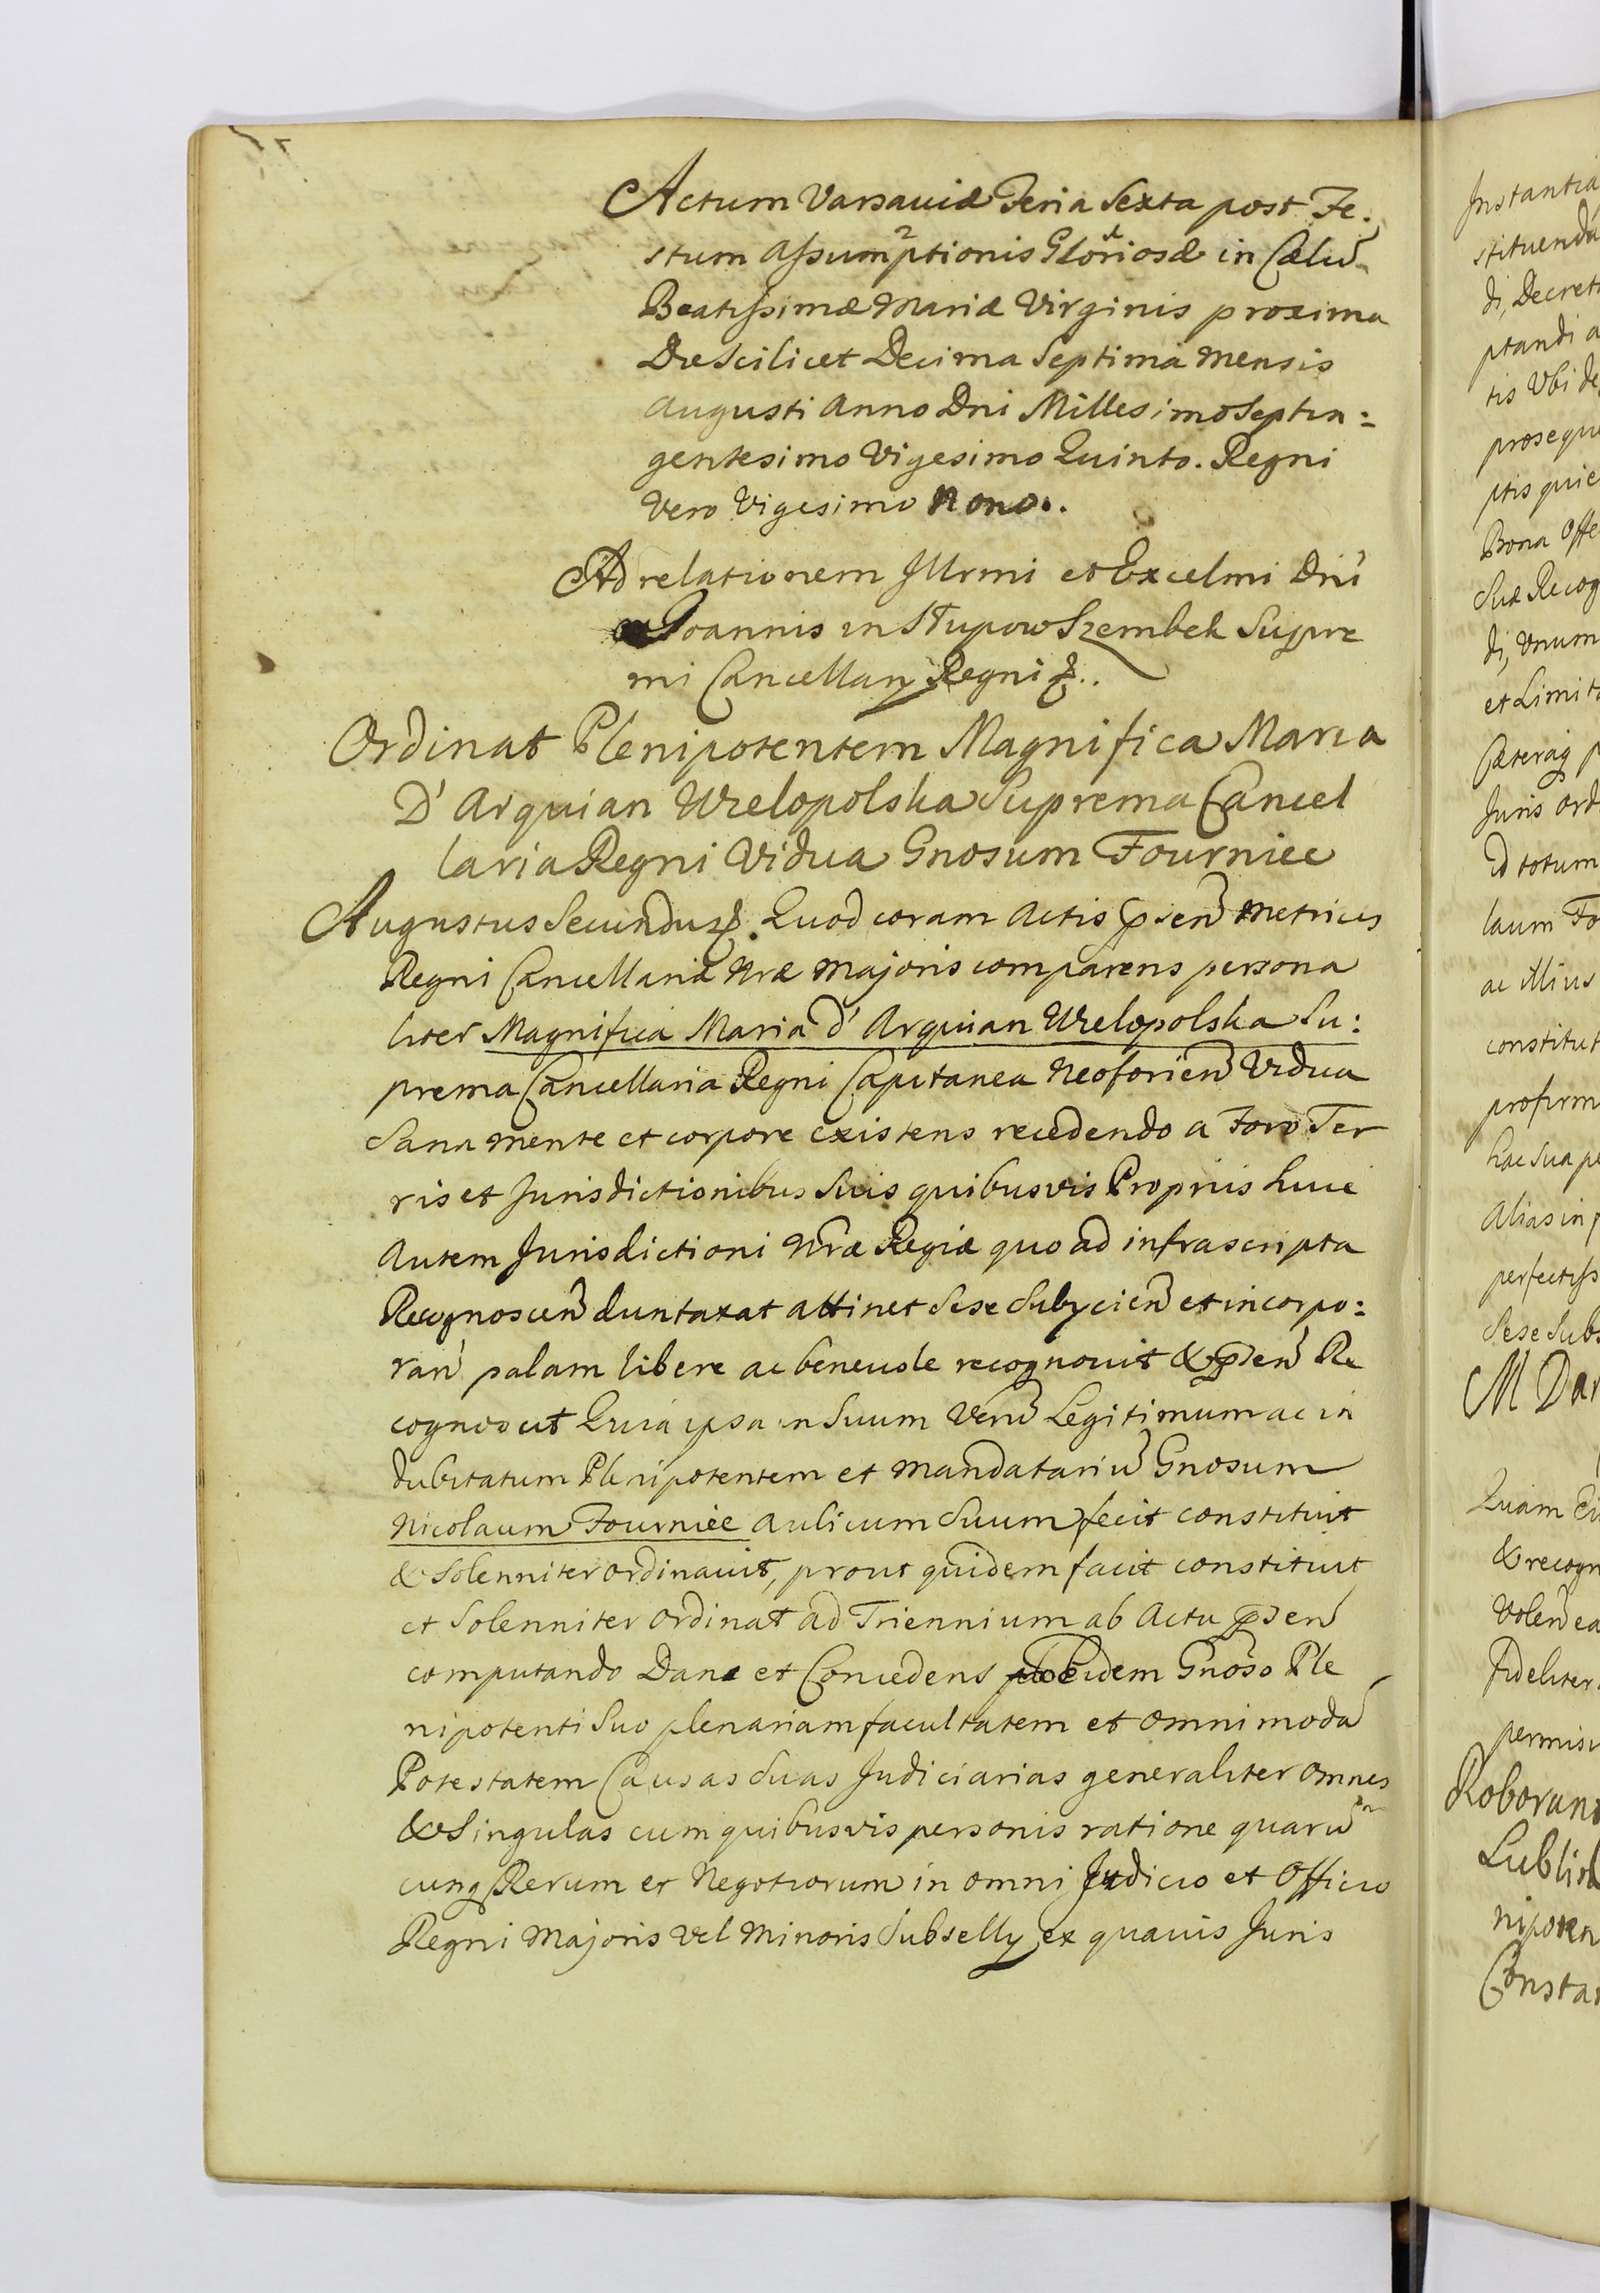 Actum Varsaviæ Feria Sexta post Fe.
stum Assumptionis Gloriosæ in Cælũ
Beatissimæ Mariæ Virginis proxima
Die Scilicet Decima Septima Mensis
Augusti Anno Dni Millesimo Septin:
gentesimo Vigesimo Quinto. Regni
Vero Vigesimo Nono.
Ad relationem Illrmi et Excelmi Dni
Joannis in Słupow Szembek Supre
mi Cancellary Regni &.
Ordinat Plenipotentem Magnifica Maria
D' Arquian Wielopolska Suprema Cancel
laria Regni Vidua Gnosum Fourniee
Augustus Secundus &. Quod coram Actis psen̄ Metrices
Regni Cancellariæ Nræ Majoris comparens persona
liter Magnifica Maria d' Arquian Wielopolska Su:
prema Cancellaria Regni Capitanea Neoforien̄ Vidua
Sana mente et corpore existens recedendo a Foro Ter
ris et Jurisdictionibus Suis quibusvis Proprijs huic
Autem Jurisdictioni Nræ Regiæ quo ad infrascripta
Recognoscen̄ duntaxat attinet Sese Subijcien̄ et incorpo:
ran̄ palam libere ac benevole recognovit & psen̄ Re
cognoscit Quia ipsa in Suum Verũ Legitimum ac in
dubitatum Plenipotentem et Mandatariũ Gnosum
Nicolaum Fourniee Aulicum Suum fecit constituit
& Solenniter ordinavit, prout quidem facit constituit
et Solenniter ordinat ad Triennium ab Actu psen̄
computando Dans et Concedens Eidem Gnoso Ple
nipotenti Suo plenariam facultatem et omnimodã
Potestatem Causas Suas Judiciarias generaliter omnes
& Singulas cum quibusvis personis ratione quarũ
cunq Rerum et Negotiorum in omni Judicio et Officio
Regni Majoris Vel Minoris Subselly ex quavis Juris
Instantia
stituendã
di, Decret
ptandi a
tis Vbi de
prosequ
ptis quie
Bona Offe
Suæ Recog
di, Vnum
et Limita
Cæteraq p
Juris ord
Id totum
laum Fo
ac illius
constitut
pro firm
hac Sua pe
Alias in p
perfectiss
Sese Subs
M Dar
Quam Ei
& recogn
Volen̄ ea
fideliter
permisi
Roboran
Lublin
nipoten
Constan